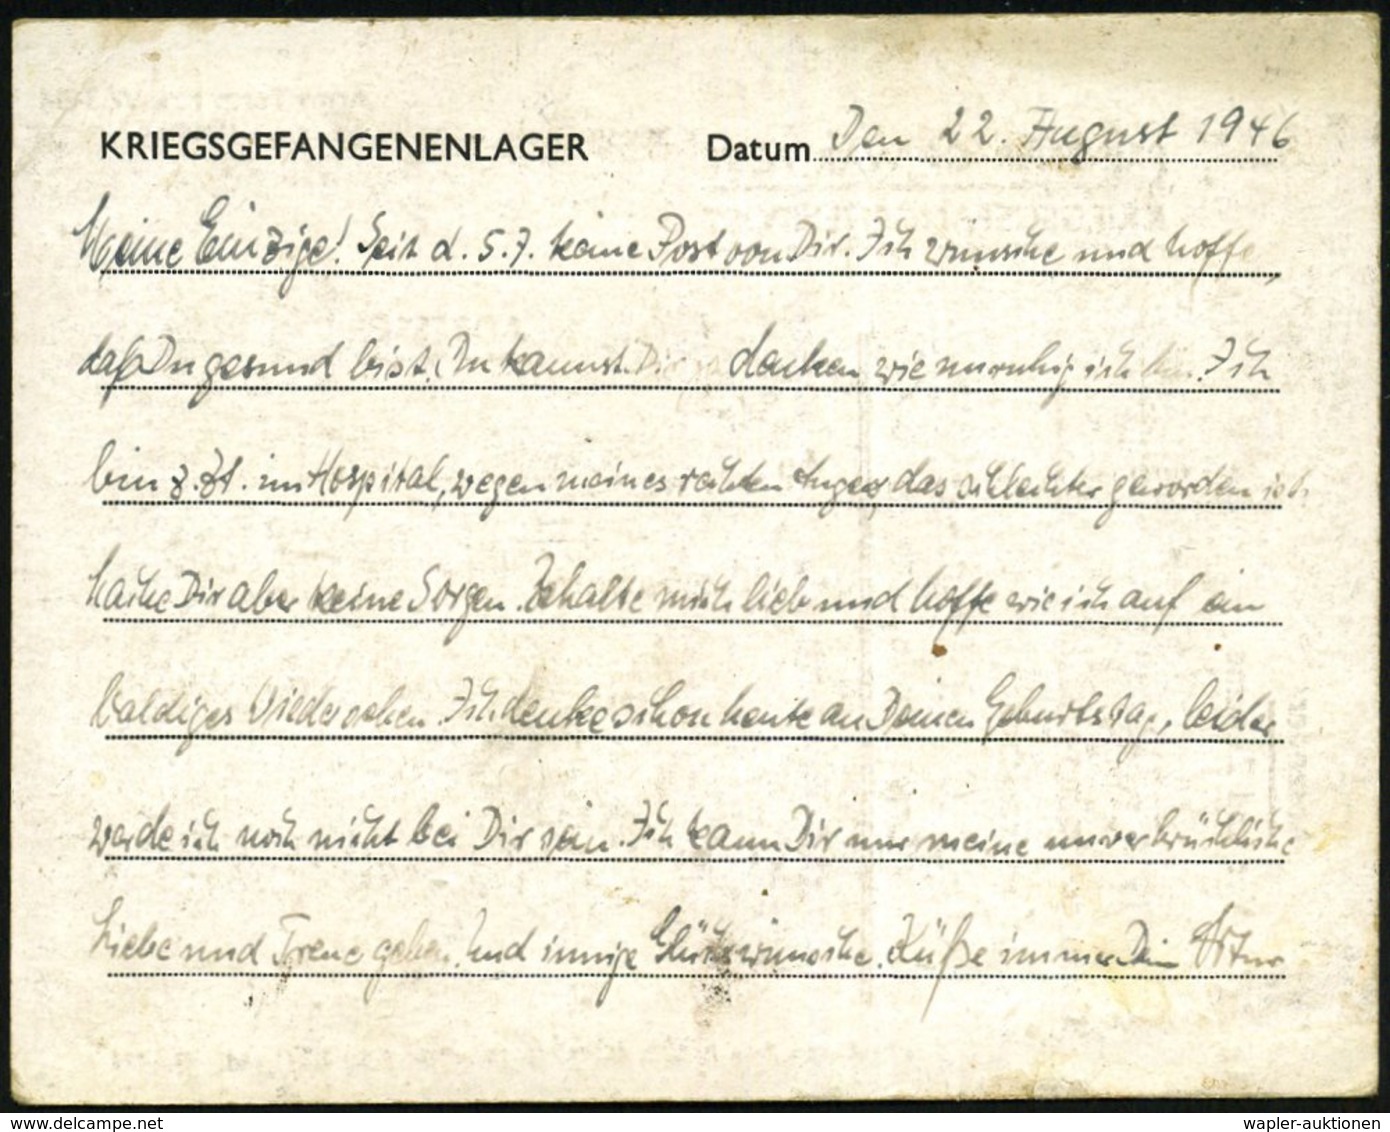 KRIEGSGEFANGENENLAGER Datum Den 22. August 1946
Meine Einzige! Seit d. 5.7. keine Post von Dir. Ich wünsche und hoffe,
daß Du gesund bist. Du kannst Dir ja denken wie unruhig ich bin. Ich
bin z. Zt. im Hospital, wegen meines rechten Auges, das schlechter geworden ist.
Mache Dir aber keine Sorgen. Behalte mich lieb und hoffe wie ich auf ein
baldiges Wiedersehen. Ich denke schon heute an Deinen Geburtstag, leider
werde ich noch nicht bei Dir sein. Ich kann Dir nur meine unverbrüchliche
Liebe und Treue geben. Und innige Glückswünsche. Küße immer Dein Artur
wapler-auktionen